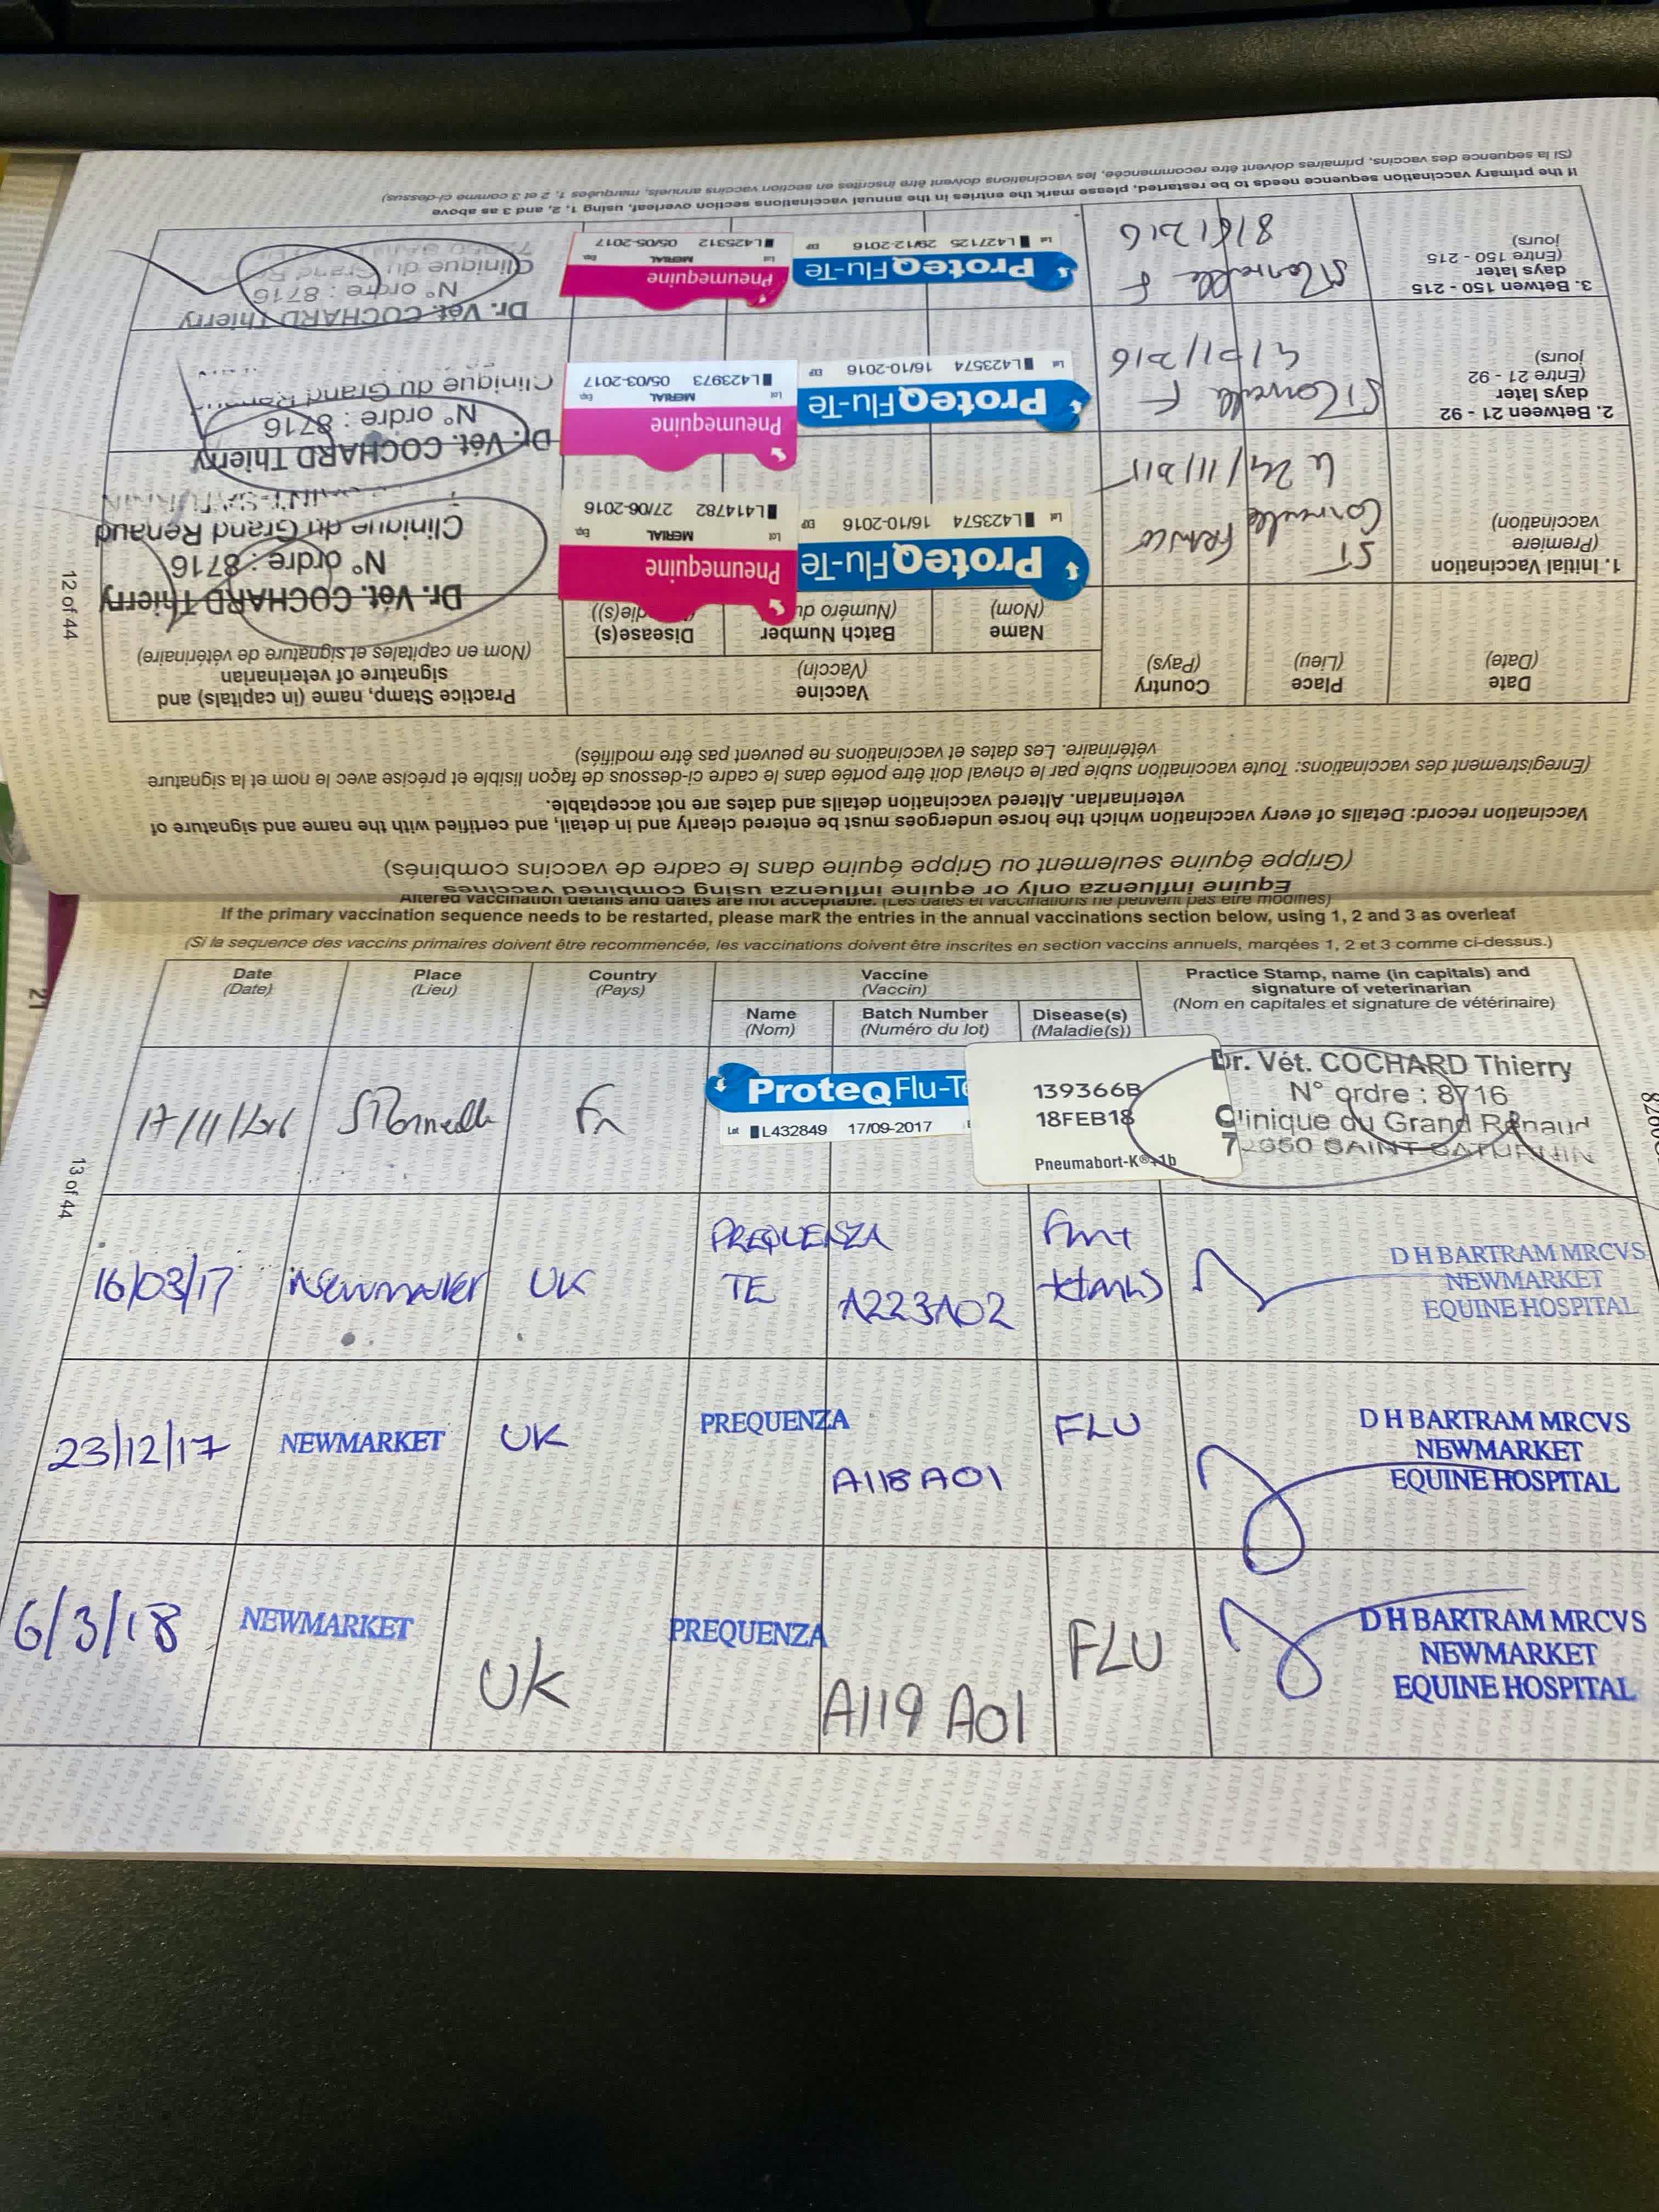 Equine influenza only or equine influenza using combined vaccines
(Grippe équine seulement ou Grippe équine dans le cadre de vaccins combinés)
Vaccination record: Details of every vaccination which the horse undergoes must be entered clearly and in detail, and certified with the name and signature of
veterinarian. Altered vaccination details and dates are not acceptable.
(Enregistrement des vaccinations: Toute vaccination subie par le cheval doit être portée dans le cadre ci-dessous de façon lisible et précise avec le nom et la signature
vétérinaire. Les dates et vaccinations ne peuvent pas être modifiés)
Date
(Date)
Place
(Lieu)
Country
(Pays)
Vaccine
(Vaccin)
Name
(Nom)
Batch Number
(Numéro du
Disease(s)
die(s))
Practice Stamp, name (in capitals) and
signature of veterinarian
(Nom en capitales et signature de vétérinaire)
1. Initial Vaccination
(Première
vaccination)
ST
FRANCE
24/11/2015
ProteqFlu-Te
Lot L423574 16/10-2016 EXP
Pneumequine
MERIAL
Lot L414782 27/06-2016 Exp
Dr. Vét. COCHARD Thierry
N° ordre : 8716
Clinique du Grand Renaud
2. Between 21 - 92
days later
(Entre 21 - 92
jours)
F
ProteqFlu-Te
Lot L423574 16/10-2016 EXP
Pneumequine
MERIAL
Lot L423973 05/03-2017 Exp
Dr. Vét. COCHARD Thierry
N° ordre : 8716
Clinique du Grand Renaud
3. Betwen 150 - 215
days later
(Entre 150 - 215
jours)
F
8/6/2016
ProteqFlu-Te
Lot L427125 29/12-2016 EXP
Pneumequine
MERIAL
Lot L425312 05/05-2017 Exp
Dr. Vét. COCHARD Thierry
N° ordre : 8716
Clinique du Grand
If the primary vaccination sequence needs to be restarted, please mark the entries in the annual vaccinations section overleaf, using 1, 2, and 3 as above
(Si la sequence des vaccins, primaires doivent être recommencée, les vaccinations doivent être inscrites en section vaccins annuels, marquées 1, 2 et 3 comme ci-dessus)
12 of 44
Altered vaccination details and dates are not acceptable. (Les dates et vaccinations ne peuvent pas être modifiés)
If the primary vaccination sequence needs to be restarted, please mark the entries in the annual vaccinations section below, using 1, 2 and 3 as overleaf
(Si la sequence des vaccins primaires doivent être recommencée, les vaccinations doivent être inscrites en section vaccins annuels, marqées 1, 2 et 3 comme ci-dessus.)
Date
(Date)
Place
(Lieu)
Country
(Pays)
Vaccine
(Vaccin)
Name
(Nom)
Batch Number
(Numéro du lot)
Disease(s)
(Maladie(s))
Practice Stamp, name (in capitals) and
signature of veterinarian
(Nom en capitales et signature de vétérinaire)
17/11/2016
Fr
ProteqFlu-Te
Lot L432849 17/09-2017
139366B
18FEB18
Pneumabort-K®+1b
Dr. Vét. COCHARD Thierry
N° ordre : 8716
Clinique du Grand Renaud
SAINT SATURNIN
16/03/17
Newmarket
UK
PREQUENZA
TE
A223A02
D H BARTRAM MRCVS
NEWMARKET
EQUINE HOSPITAL
23/12/17
NEWMARKET
UK
PREQUENZA
A118A01
FLU
D H BARTRAM MRCVS
NEWMARKET
EQUINE HOSPITAL
6/3/18
NEWMARKET
UK
PREQUENZA
A119 A01
FLU
D H BARTRAM MRCVS
NEWMARKET
EQUINE HOSPITAL
13 of 44
21